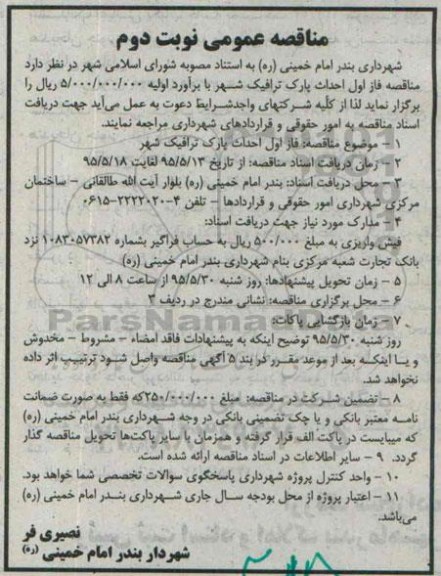 مناقصه عمومی نوبت دوم
شهرداری بندر امام خمینی (ره) به استناد مصوبه شورای اسلامی شهر در نظر دارد
مناقصه فاز اول احداث پارک ترافیک شهر با برآورد اولیه ۵/۰۰۰/۰۰۰/۰۰۰ ریال را
برگزار نماید لذا از کلّیه شرکتهای واجدشرایط دعوت به عمل می‌آید جهت دریافت
اسناد مناقصه به امور حقوقی و قراردادهای شهرداری مراجعه نمایند.
۱ – موضوع مناقصه: فاز اول احداث پارک ترافیک شهر
۲ – زمان دریافت اسناد مناقصه: از تاریخ ۹۵/۵/۱۳ لغایت ۹۵/۵/۱۸
۳ – محل دریافت اسناد: بندر امام خمینی (ره) بلوار آیت الله طالقانی – ساختمان
مرکزی شهرداری امور حقوقی و قراردادها – تلفن ۴-۲۲۲۲۰۲۰-۰۶۱۵
۴ – مدارک مورد نیاز جهت دریافت اسناد:
فیش واریزی به مبلغ ۵۰۰/۰۰۰ ریال به حساب فراگیر بشماره ۱۰۸۳۰۵۷۳۸۲ نزد
بانک تجارت شعبه مرکزی بنام شهرداری بندر امام خمینی (ره)
۵ – زمان تحویل پیشنهادها: روز شنبه ۹۵/۵/۳۰ از ساعت ۸ الی ۱۲
۶ – محل برگزاری مناقصه: نشانی مندرج در ردیف ۳
۷ – زمان بازگشایی پاکات:
روز شنبه ۹۵/۵/۳۰ توضیح اینکه به پیشنهادات فاقد امضاء – مشروط – مخدوش
و یا اینکه بعد از موعد مقرر در بند ۵ آگهی مناقصه واصل شود ترتیب اثر داده
نخواهد شد.
۸ – تضمین شرکت در مناقصه: مبلغ ۲۵۰/۰۰۰/۰۰۰که فقط به صورت ضمانت
نامه معتبر بانکی و یا چک تضمینی بانکی در وجه شهرداری بندر امام خمینی (ره)
که میبایست در پاکت الف قرار گرفته و همزمان با سایر پاکت‌ها تحویل مناقصه گذار
گردد. ۹ – سایر اطلاعات در اسناد مناقصه ارائه شده است.
۱۰ – واحد کنترل پروژه شهرداری پاسخگوی سوالات تخصصی شما خواهد بود.
۱۱ – اعتبار پروژه از محل بودجه سال جاری شهرداری بندر امام خمینی (ره)
می‌باشد.
نصیری فر
شهردار بندر امام خمینی (ره)
ParsNamadData